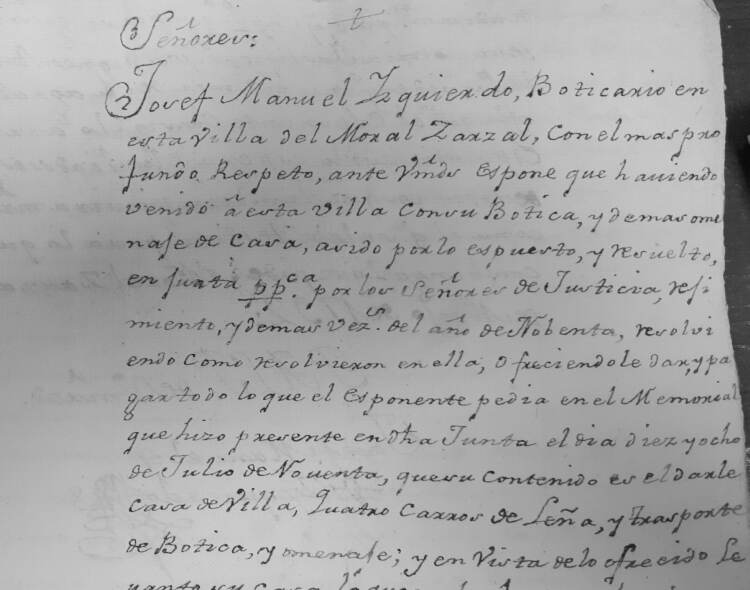 Señores:
Josef Manuel Izquierdo, Boticario en
esta villa del Moral Zarzal, con el mas pro
fundo Respeto, ante Vmds Espone que haviendo
venido â esta villa con su Botica, y demas ome
nase de Casa, asido por lo espuesto, y resuelto,
en Junta pp.ca por los Señores de Justicia, resi
miento, y demas vez.s del año de Nobenta, resolvi
endo como resolvieron en ella, ofreciendole dar, y pa
gar todo lo que el Esponente pedia en el Memorial
que hizo presente en dha Junta el dia diez y ocho
de Julio de Noventa, que su contenido es el darle
Casa de Villa, Quatro Carros de Leña, y trasporte
de Botica, y omenase; y en Vista de lo ofrecido le
vanto su Casa